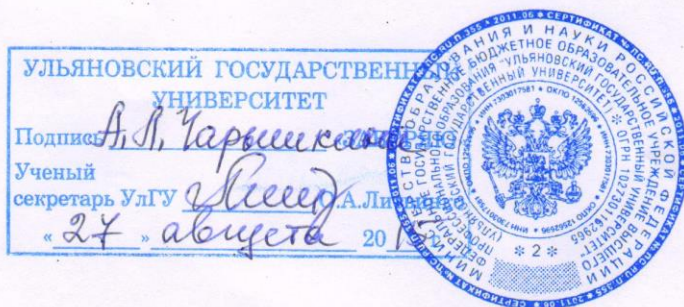 УЛЬЯНОВСКИЙ ГОСУДАРСТВЕННЫЙ
УНИВЕРСИТЕТ
Подпись А. Л. Чарышкина
Ученый
секретарь УлГУ О.А.Литвинко
« 27 » августа 20
МИНИСТЕРСТВО ОБРАЗОВАНИЯ И НАУКИ РОССИЙСКОЙ ФЕДЕРАЦИИ
ФЕДЕРАЛЬНОЕ ГОСУДАРСТВЕННОЕ БЮДЖЕТНОЕ ОБРАЗОВАТЕЛЬНОЕ УЧРЕЖДЕНИЕ ВЫСШЕГО
ПРОФЕССИОНАЛЬНОГО ОБРАЗОВАНИЯ "УЛЬЯНОВСКИЙ ГОСУДАРСТВЕННЫЙ УНИВЕРСИТЕТ"
* 2 *